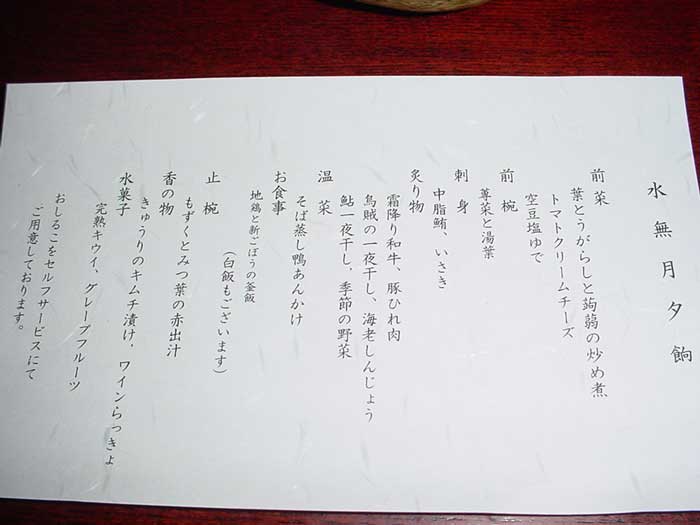 水無月夕餉
前菜
葉とうがらしと蒟蒻の炒め煮
トマトクリームチーズ
空豆塩ゆで
前椀
蓴菜と湯葉
刺身
中脂鮪、いさき
炙り物
霜降り和牛、豚ひれ肉
烏賊の一夜干し、海老しんじょう
鮎一夜干し、季節の野菜
温菜
そば蒸し鴨あんかけ
お食事
地鶏と新ごぼうの釜飯
（白飯もございます）
止椀
もずくとみつ葉の赤出汁
香の物
きゅうりのキムチ漬け、ワインらっきょ
水菓子
完熟キウイ、グレープフルーツ
おしるこをセルフサービスにて
ご用意しております。